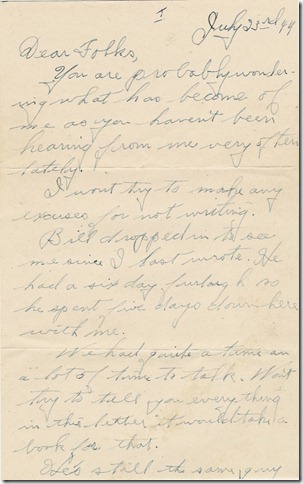 I
July 23rd 44
Dear Folks,
You are probably wonder-
ing what has become of
me as you haven't been
hearing from me very often
lately.
I wont try to make any
excuses for not writing.
Bill dropped in to see
me since I last wrote. He
had a six day furlough so
he spent five days down here
with me.
We had quite a time an
a lot of time to talk. Wont
try to tell you everything
in this letter it would take a
book for that.
He's still the same guy